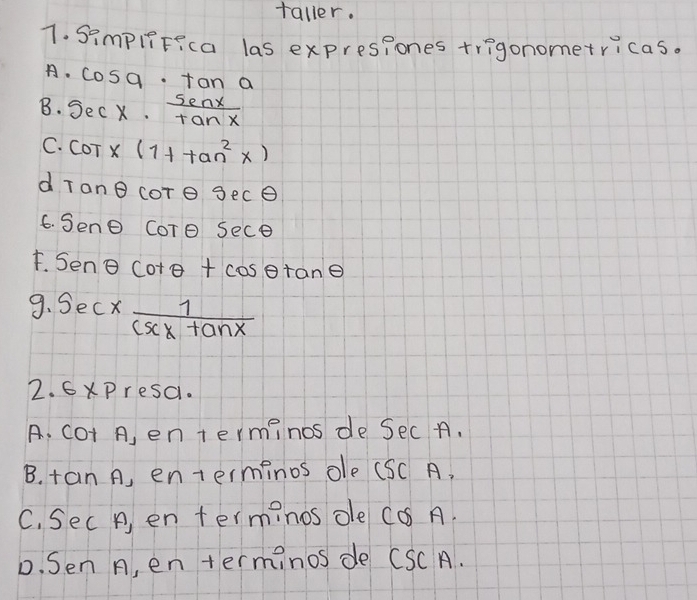 taller.
1. Simplifica las expresiones trigonometricas.
A. cosa . tan a
B. Sec x . senx / tan x
C. COT x (1 + tan² x)
d Tan θ COT θ Sec θ
E. Sen θ COT θ Sec θ
F. Sen θ cot θ + cos θ tan θ
g. Sec x 1 / csc x tan x
2. Expresa.
A. Cot A, en terminos de Sec A.
B. tan A, en terminos de CSC A.
C. Sec A, en terminos de Cos A.
D. Sen A, en terminos de CSC A.